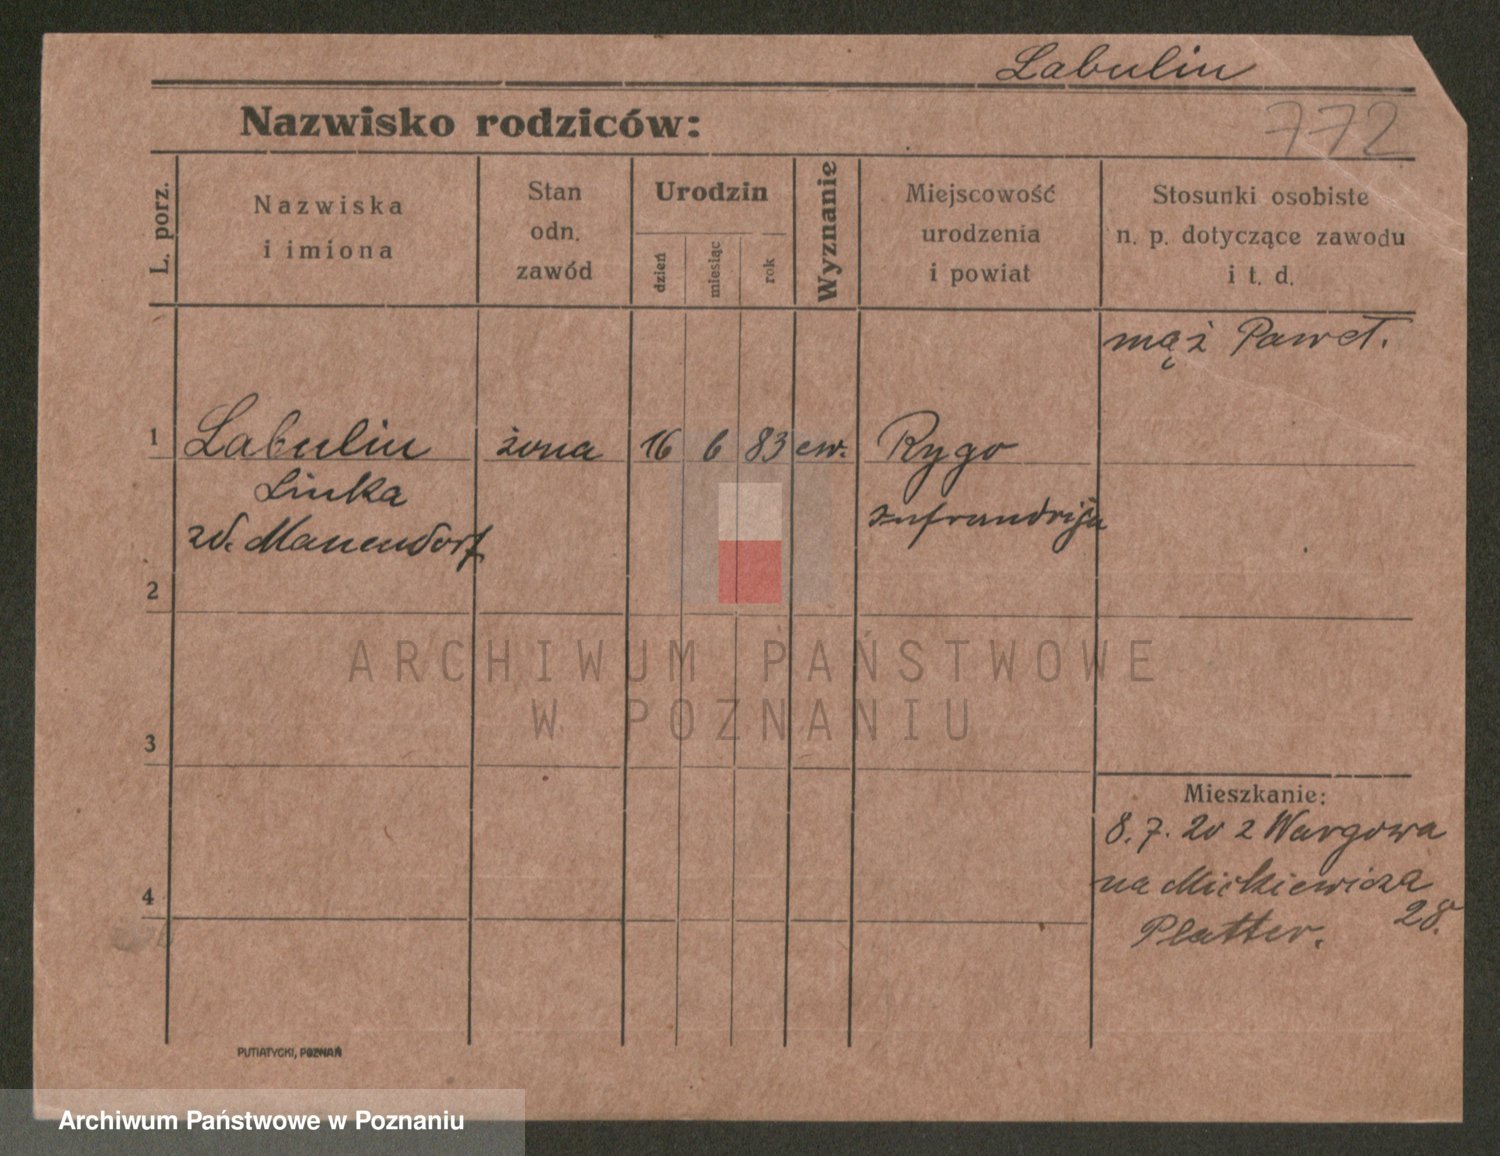 Labulin
Nazwisko rodziców:
772
L. porz.
Nazwiska
i imiona
Stan
odn.
zawód
Urodzin
dzień
miesiąc
rok
Wyznanie
Miejscowość
urodzenia
i powiat
Stosunki osobiste
n. p. dotyczące zawodu
i t. d.
mąż Paweł.
1 Labulin żona 16 6 83 ew. Rygo
Linka
zd. Manendorf
2
3
4
Mieszkanie:
8. 7. 20 z Wargowa
na Mickiewicza
28.
Platter.
PUTIATYCKI, POZNAŃ
ARCHIWUM PAŃSTWOWE
W POZNANIU
Archiwum Państwowe w Poznaniu